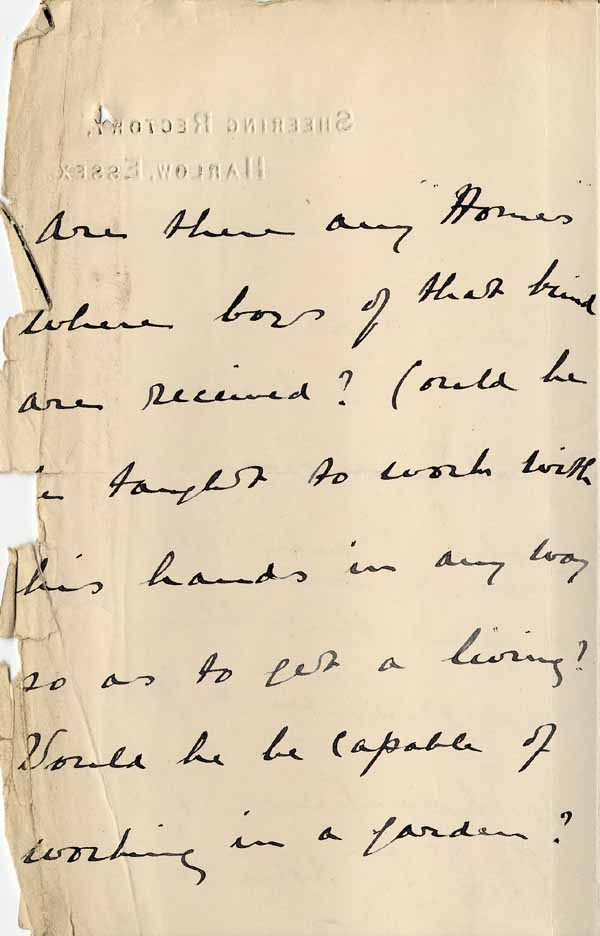 SHEERING RECTORY,
HARLOW, ESSEX.
Are there any "Homes"
where boys of that kind
are received? Could he
be taught to work with
his hands in any way
so as to get a living?
Would he be capable of
working in a garden?